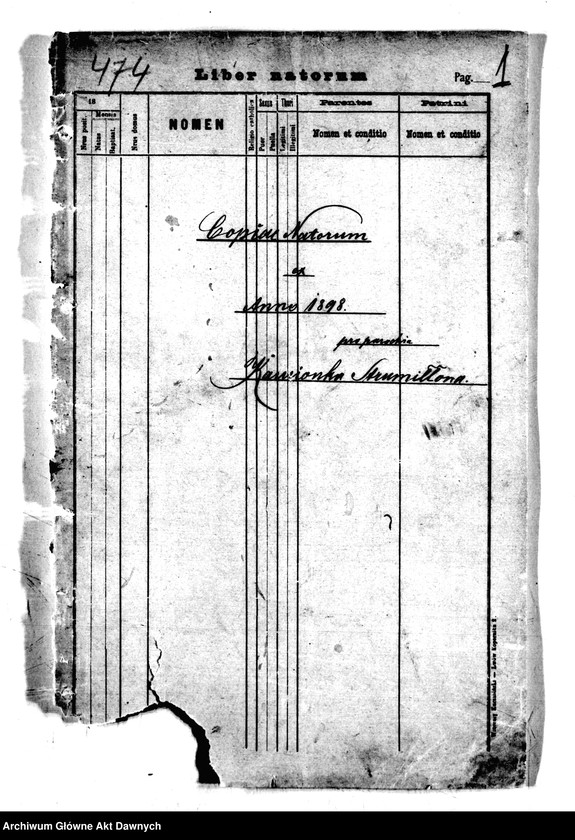 474
Liber natorum
Pag. 1
18
Mensis
Sexus
Thori
Parentes
Patrini
Nrus posit.
Natus
Baptisat.
Nrus domus
NOMEN
Religio catholica
Puer
Puella
Legitimi
Illegitimi
Nomen et conditio
Nomen et conditio
Copiae Natorum
ex
Anno 1898.
pro parochia
Kamionka Strumiłłona.
Lwów Kopernika
Archiwum Główne Akt Dawnych